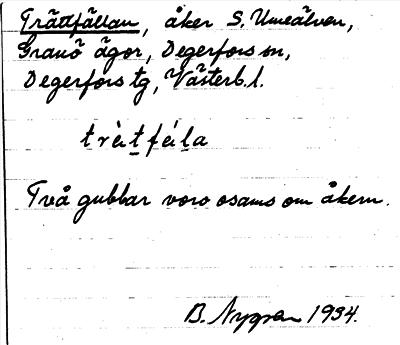 Trättfällan, åker S. Umeälven,
Granö ägor, Degerfors sn,
Degerfors tg, Västerb. l.
Två gubbar voro osams om åkern.
B. Nygren 1934.